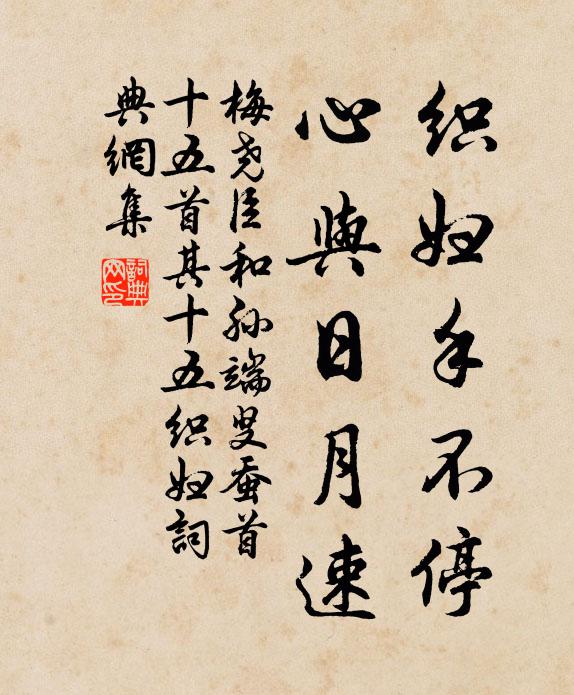 织妇手不停
心與日月速
梅尧臣和孙端叟蚕首
十五首其十五织妇詞
典網集
詞典網印